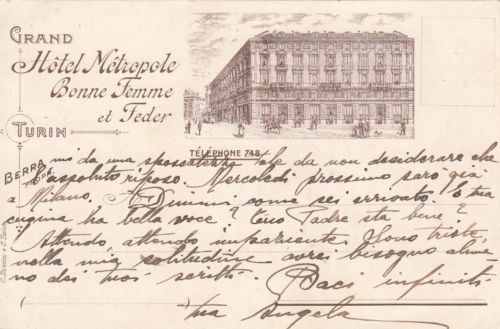 GRAND
Hôtel Métropole
Bonne Femme
et Feder
TURIN
TÉLÉPHONE 748
BERRA
PROP.
mi da una spossatezza tale da non desiderare che
l'assoluto riposo. Mercoledì prossimo sarò già
a Milano. Dimmi come sei arrivato. E tua
cugina ha bella voce? Tuo Padre sta bene?
Attendo, attendo impaziente. Sono triste
nella mia solitudine avrei bisogno alme-
no dei tuoi scritti.
Baci infiniti
tua Angela